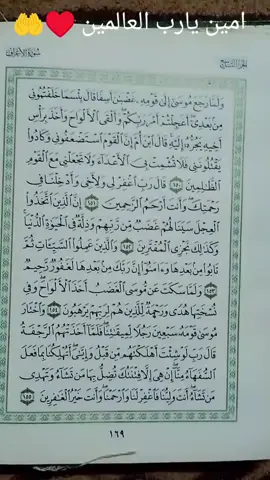 امين يارب العالمين ❤️🤲
الجزء التاسع
سورة الأعراف
وَلَمَّا رَجَعَ مُوسَىٰ إِلَىٰ قَوْمِهِ غَضْبَٰنَ أَسِفًا قَالَ بِئْسَمَا خَلَفْتُمُونِي
مِنۢ بَعْدِيٓ أَعَجِلْتُمْ أَمْرَ رَبِّكُمْ وَأَلْقَى ٱلْأَلْوَاحَ وَأَخَذَ بِرَأْسِ
أَخِيهِ يَجُرُّهُۥٓ إِلَيْهِ قَالَ ٱبْنَ أُمَّ إِنَّ ٱلْقَوْمَ ٱسْتَضْعَفُونِي وَكَادُوا۟
يَقْتُلُونَنِي فَلَا تُشْمِتْ بِيَ ٱلْأَعْدَآءَ وَلَا تَجْعَلْنِي مَعَ ٱلْقَوْمِ
ٱلظَّٰلِمِينَ ١٥٠ قَالَ رَبِّ ٱغْفِرْ لِي وَلِأَخِي وَأَدْخِلْنَا فِي
رَحْمَتِكَ وَأَنتَ أَرْحَمُ ٱلرَّٰحِمِينَ ١٥١ إِنَّ ٱلَّذِينَ ٱتَّخَذُوا۟
ٱلْعِجْلَ سَيَنَالُهُمْ غَضَبٌ مِّن رَّبِّهِمْ وَذِلَّةٌ فِي ٱلْحَيَوٰةِ ٱلدُّنْيَا
وَكَذَٰلِكَ نَجْزِي ٱلْمُفْتَرِينَ ١٥٢ وَٱلَّذِينَ عَمِلُوا۟ ٱلسَّيِّـَٔاتِ ثُمَّ
تَابُوا۟ مِنۢ بَعْدِهَا وَءَامَنُوٓا۟ إِنَّ رَبَّكَ مِنۢ بَعْدِهَا لَغَفُورٌ رَّحِيمٌ
١٥٣ وَلَمَّا سَكَتَ عَن مُّوسَى ٱلْغَضَبُ أَخَذَ ٱلْأَلْوَاحَ وَفِي
نُسْخَتِهَا هُدًى وَرَحْمَةٌ لِّلَّذِينَ هُمْ لِرَبِّهِمْ يَرْهَبُونَ ١٥٤ وَٱخْتَارَ
مُوسَىٰ قَوْمَهُۥ سَبْعِينَ رَجُلًا لِّمِيقَٰتِنَا فَلَمَّآ أَخَذَتْهُمُ ٱلرَّجْفَةُ
قَالَ رَبِّ لَوْ شِئْتَ أَهْلَكْتَهُم مِّن قَبْلُ وَإِيَّٰيَ أَتُهْلِكُنَا بِمَا فَعَلَ
ٱلسُّفَهَآءُ مِنَّآ إِنْ هِيَ إِلَّا فِتْنَتُكَ تُضِلُّ بِهَا مَن تَشَآءُ وَتَهْدِي
مَن تَشَآءُ أَنتَ وَلِيُّنَا فَٱغْفِرْ لَنَا وَٱرْحَمْنَا وَأَنتَ خَيْرُ ٱلْغَٰفِرِينَ ١٥٥
١٦٩